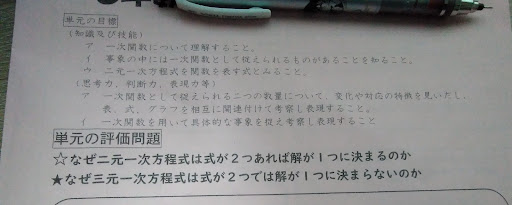 単元の目標
(知識及び技能)
ア 一次関数について理解すること。
イ 事象の中には一次関数として捉えられるものがあることを知ること。
ウ 二元一次方程式を関数を表す式とみること。
(思考力、判断力、表現力等)
ア 一次関数として捉えられる二つの数量について、変化や対応の特徴を見いだし、
表、式、グラフを相互に関連付けて考察し表現すること。
イ 一次関数を用いて具体的な事象を捉え考察し表現すること
単元の評価問題
☆なぜ二元一次方程式は式が2つあれば解が1つに決まるのか
★なぜ三元一次方程式は式が2つでは解が1つに決まらないのか